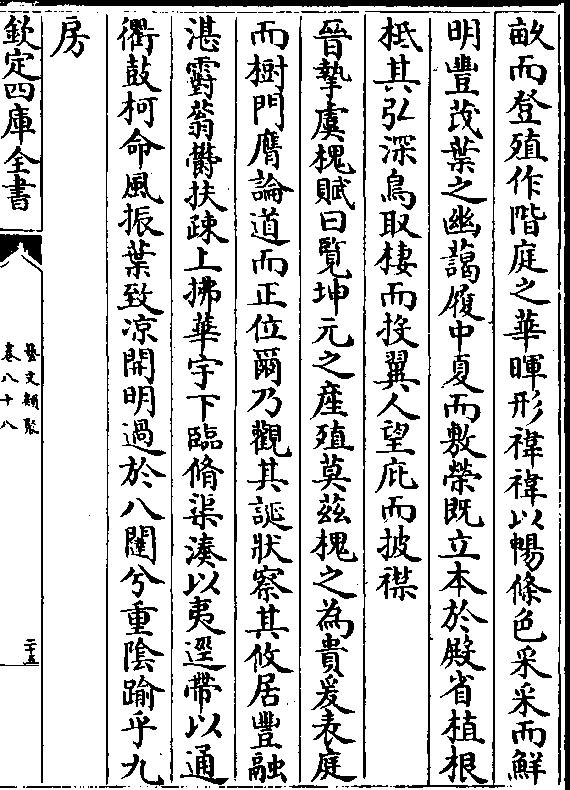 畝而登殖作階庭之華暉形禕禕以暢條色采采而鮮
明豐茂葉之幽藹履中夏而敷榮既立本於殿省植根
柢其弘深鳥取棲而投翼人望庇而披襟
晉摯虞槐賦曰覽坤元之產殖莫茲槐之為貴爰表庭
而樹門膺論道而正位爾乃觀其誕狀察其攸居豐融
湛霨蓊欝扶疎上拂華宇下臨脩渠湊以夷逕帶以通
衢鼓柯命風振葉致凉開明過於八闥兮重陰踰乎九
房
欽定四庫全書
藝文類聚
卷八十八
二十五